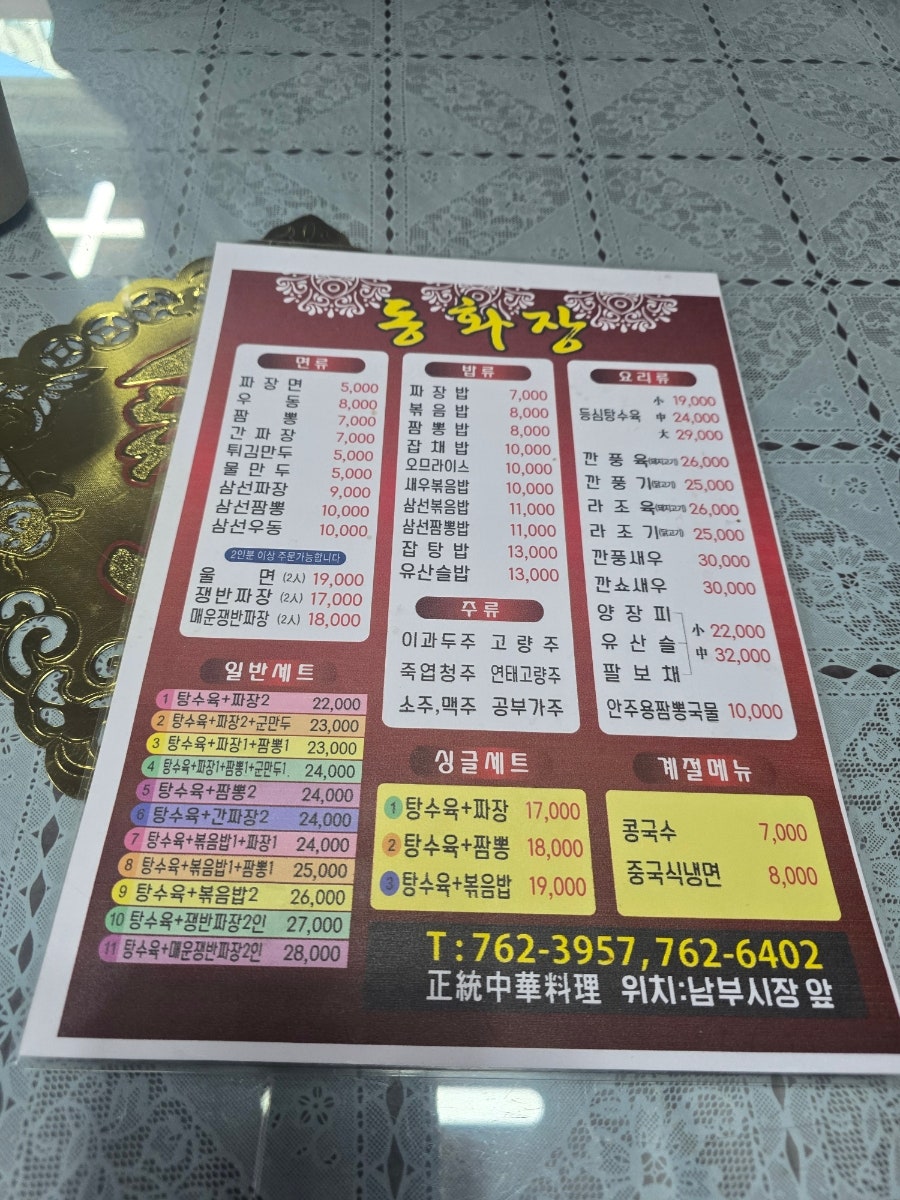 동화장
면류
파장면 5,000
우동 8,000
짬뽕 7,000
간파장 7,000
튀김만두 5,000
물만두 5,000
삼선파장 9,000
삼선짬뽕 10,000
삼선우동 10,000
2인분 이상 주문가능합니다
울면 (2人) 19,000
쟁반파장 (2人) 17,000
매운쟁반파장 (2人) 18,000
일반세트
1 탕수육+파장2 22,000
2 탕수육+파장2+군만두 23,000
3 탕수육+파장1+짬뽕1 23,000
4 탕수육+파장1+짬뽕1+군만두1 24,000
5 탕수육+짬뽕2 24,000
6 탕수육+간파장2 24,000
7 탕수육+볶음밥1+파장1 24,000
8 탕수육+볶음밥1+짬뽕1 25,000
9 탕수육+볶음밥2 26,000
10 탕수육+쟁반파장2인 27,000
11 탕수육+매운쟁반파장2인 28,000
밥류
짜장밥 7,000
볶음밥 8,000
짬뽕밥 8,000
잡채밥 10,000
오므라이스 10,000
새우볶음밥 10,000
삼선볶음밥 11,000
삼선짬뽕밥 11,000
잡탕밥 13,000
유산슬밥 13,000
주류
이과두주 고량주
죽엽청주 연태고량주
소주,맥주 공부가주
싱글세트
1 탕수육+짜장 17,000
2 탕수육+짬뽕 18,000
3 탕수육+볶음밥 19,000
요리류
小 19,000
등심탕수육 中 24,000
大 29,000
깐풍육(돼지고기) 26,000
깐풍기(닭고기) 25,000
라조육(돼지고기) 26,000
라조기(닭고기) 25,000
깐풍새우 30,000
깐쇼새우 30,000
양장피
유산슬
팔보채
小 22,000
中 32,000
안주용짬뽕국물 10,000
계절메뉴
콩국수 7,000
중국식냉면 8,000
T:762-3957,762-6402
正統中華料理 위치:남부시장 앞